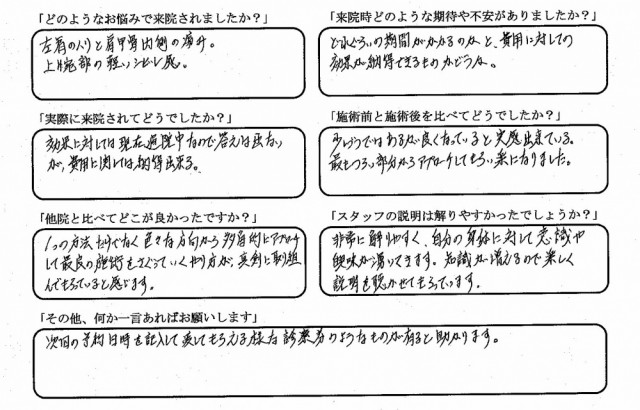 「どのようなお悩みで来院されましたか？」
左肩のハリと肩甲骨内側の痛み。
上腕部の軽いシビレ感。
「来院時どのような期待や不安がありましたか？」
どれくらいの期間がかかるのかと、費用に対しての
効果が納得できるものかどうか。
「実際に来院されてどうでしたか？」
効果に対しては現在通院中なので答えは出ない
が、費用に関しては納得出来る。
「施術前と施術後を比べてどうでしたか？」
少しづつではあるが良くなっていると実感出来ている。
最もつらい部分からアプローチしてもらい楽になりました。
「他院と比べてどこが良かったですか？」
1つの方法だけでなく色々な方向から多角的にアプローチ
して最良の施術をさぐっていくやり方が、真剣に取り組
んでもらっていると感じます。
「スタッフの説明は解りやすかったでしょうか？」
非常に解りやすく、自分の身体に対して意識や
興味が湧いてきます。知識が増えるので楽しく
説明を聴かせてもらっています。
「その他、何か一言あればお願いします」
次回の予約日時を記入して渡してもらえる様な診察券のようなものが有ると助かります。